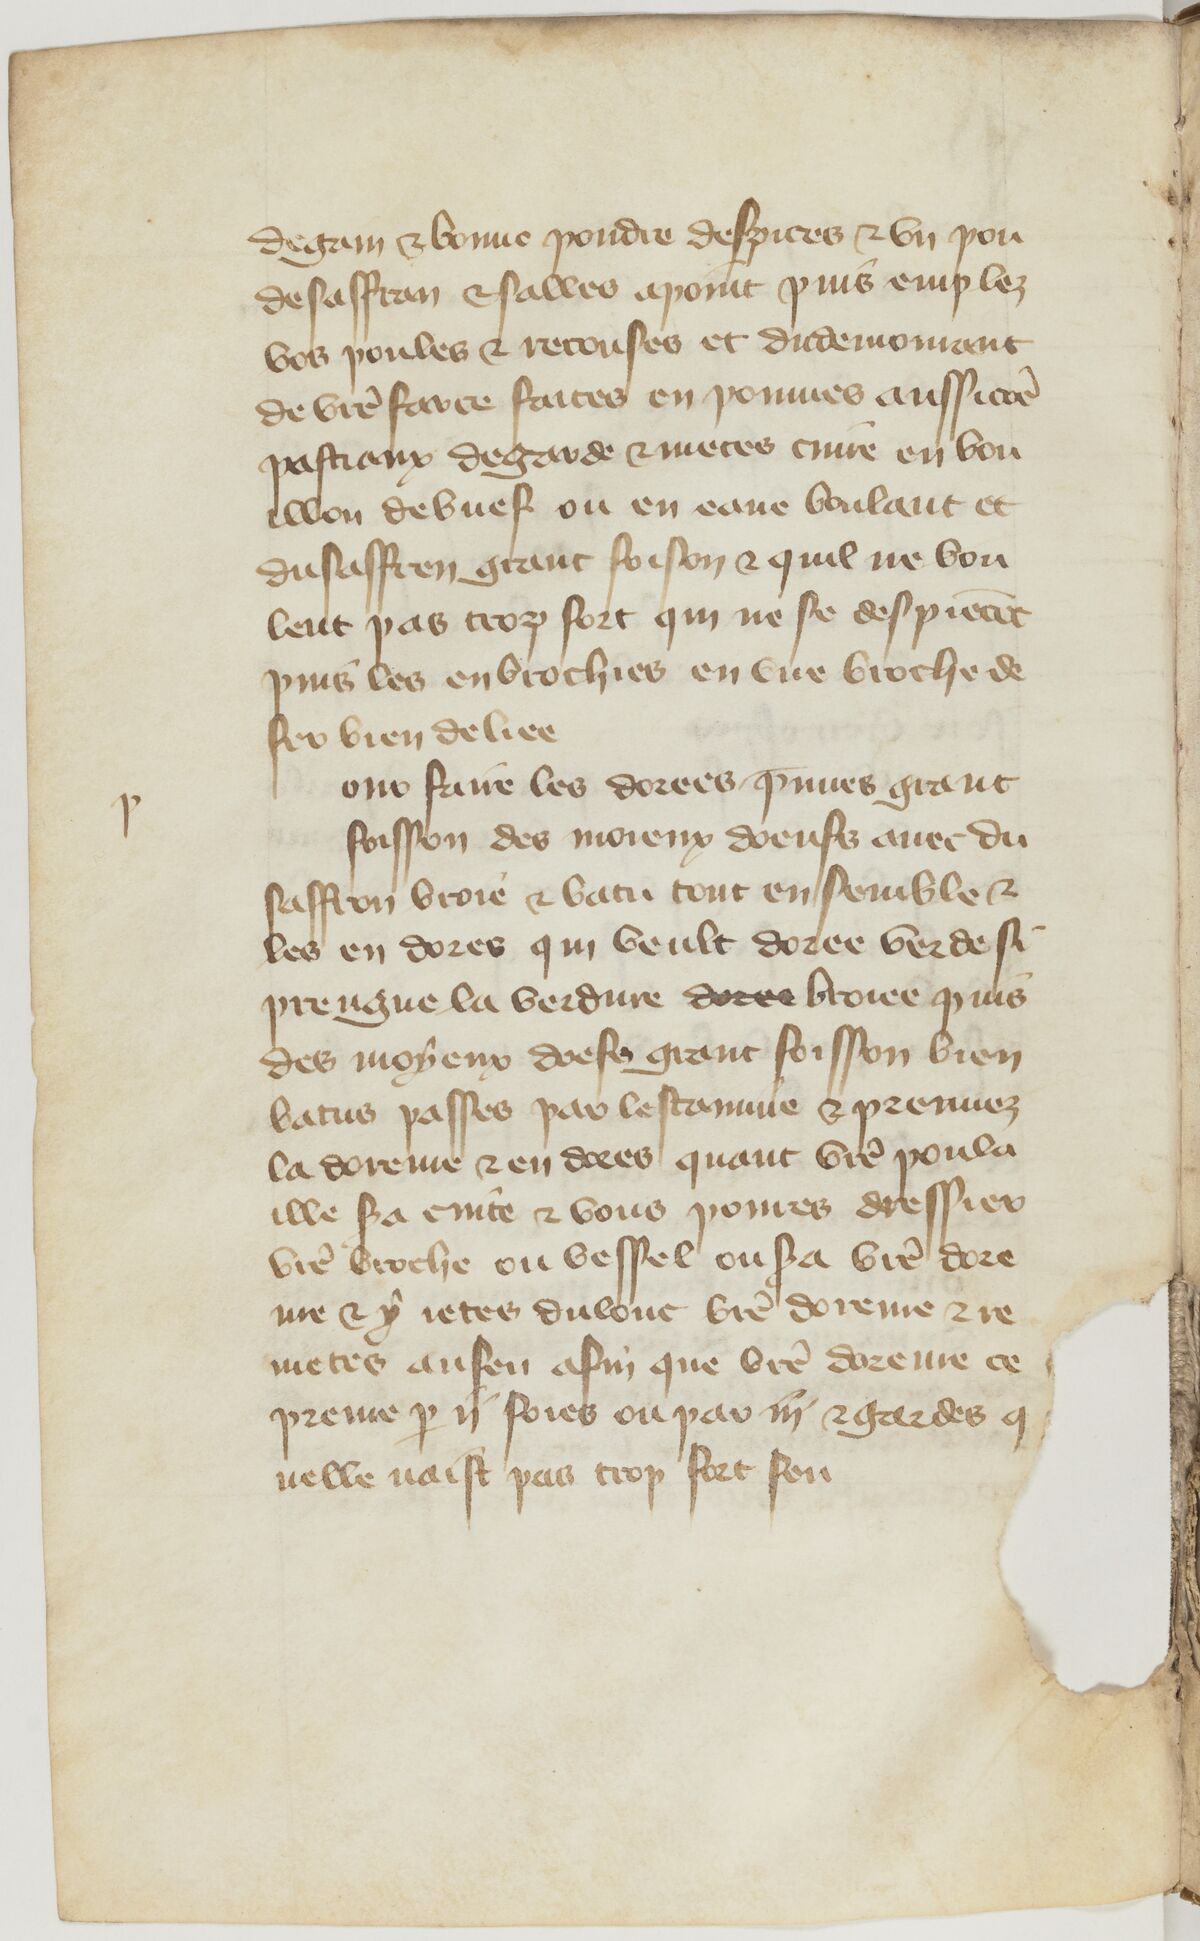 degain & bonne poudre despices & un pou
desaffran & salles apoint puis emplez
vos poules & recouses et dudemourant
de vre farce faites en pommes aussi cõe
pastiaux degarde & metes cuire en bou
illon debuef ou en eaue boulant et
dusaffren grant foison & quil ne bou
lent pas trop fort qui ne se despiecẽt
puis les enbrochies en une broche de
fer bien deliee
our faire les dorees p̃nnes grant
p
foisson des moieux doeufs avec du
saffron broié & batu tout ensemble &
les en dores qui veult doree verde si
prengne la verdure doree broiee puis
des moyeux doefs grant foisson bien
batus passes par lestamine & prennez
la doreure & en dores quant vrẽ poula
ille sa cuite & vous poures dressier
vrẽ broche ou vessel ou sa vrẽ dore
ure & y ietes dulonc vrẽ doreure & re
metes aufeu afin que vrẽ doreure ce
preure p ii fois ou par iii & gardes q
nelle naist pas trop fort feu